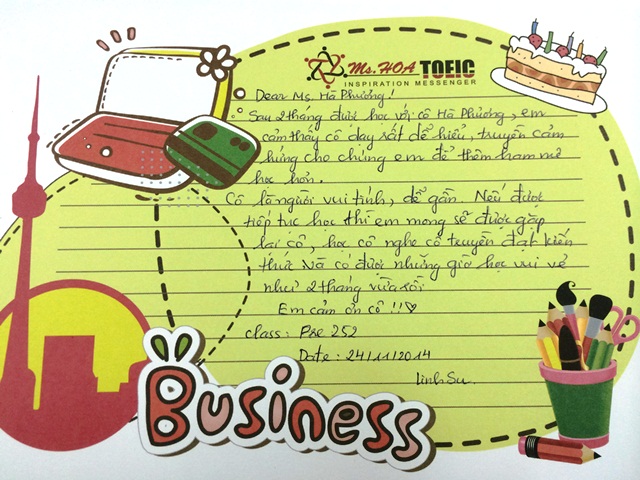 Ms.HOA TOEIC
INSPIRATION MESSENGER
Dear Ms. Hà Phương!
Sau 2 tháng được học với cô Hà Phương, em
cảm thấy cô dạy rất dễ hiểu, truyền cảm
hứng cho chúng em để thêm ham mê
học hơn.
Cô là người vui tính, dễ gần. Nếu được
tiếp tục học thì em mong sẽ được gặp
lại cô, học cô nghe cô truyền đạt kiến
thức và có được những giờ học vui vẻ
như 2 tháng vừa rồi
Em cảm ơn cô !!♡
class: Pre 252
Date: 24/11/2014
Linh Su.
Business